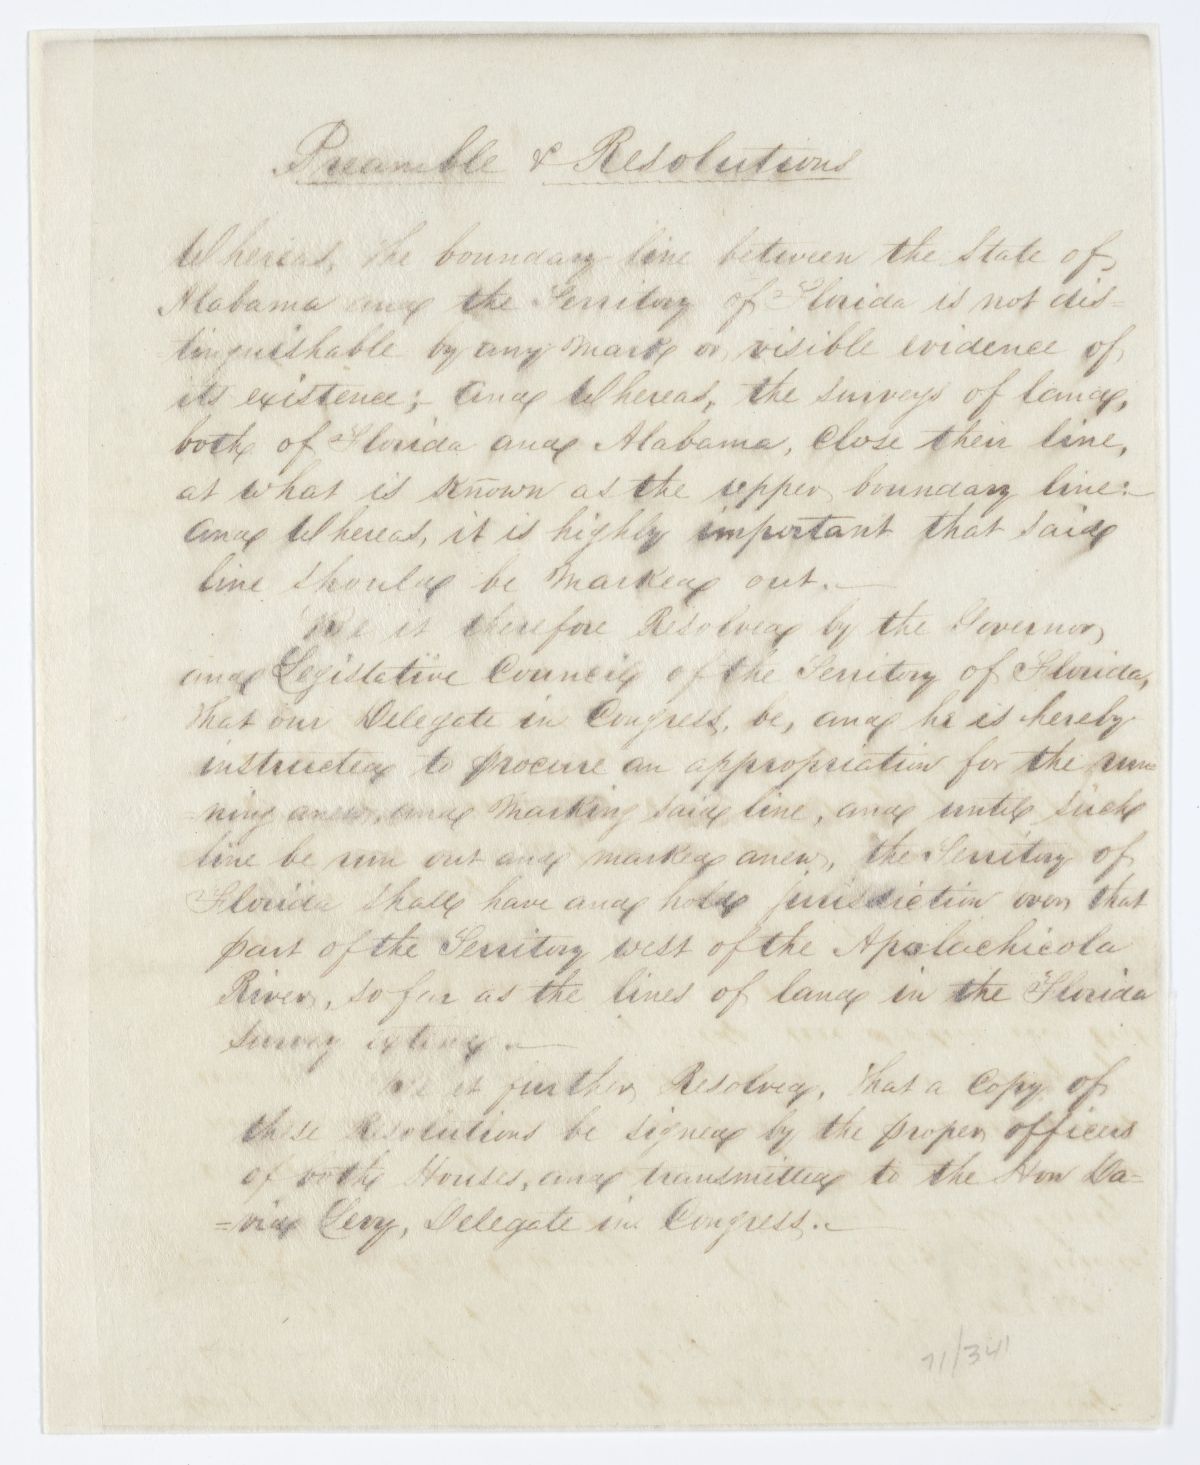 Preamble & Resolutions
Whereas, the boundary line between the State of
Alabama and the Territory of Florida is not dis=
=tinguishable by any mark or visible evidence of
its existence;- And Whereas, the surveys of land,
both of Florida and Alabama, close their line,
at what is known as the upper boundary line:-
And Whereas, it is highly important that said
line should be marked out.-
Be it therefore Resolved by the Governor
and Legislative Council of the Territory of Florida,
That our Delegate in Congress, be, and he is hereby
instructed to procure an appropriation for the run=
=ning anew, and marking said line, and until such
line be run out and marked anew, the Territory of
Florida shall have and hold jurisdiction over that
part of the Territory west of the Apalachicola
River, so far as the lines of land in the Florida
survey extend.-
Be it further Resolved, That a Copy of
these Resolutions be signed by the proper officers
of both Houses, and transmitted to the Hon Da=
=vid Levy, Delegate in Congress.-
71/341